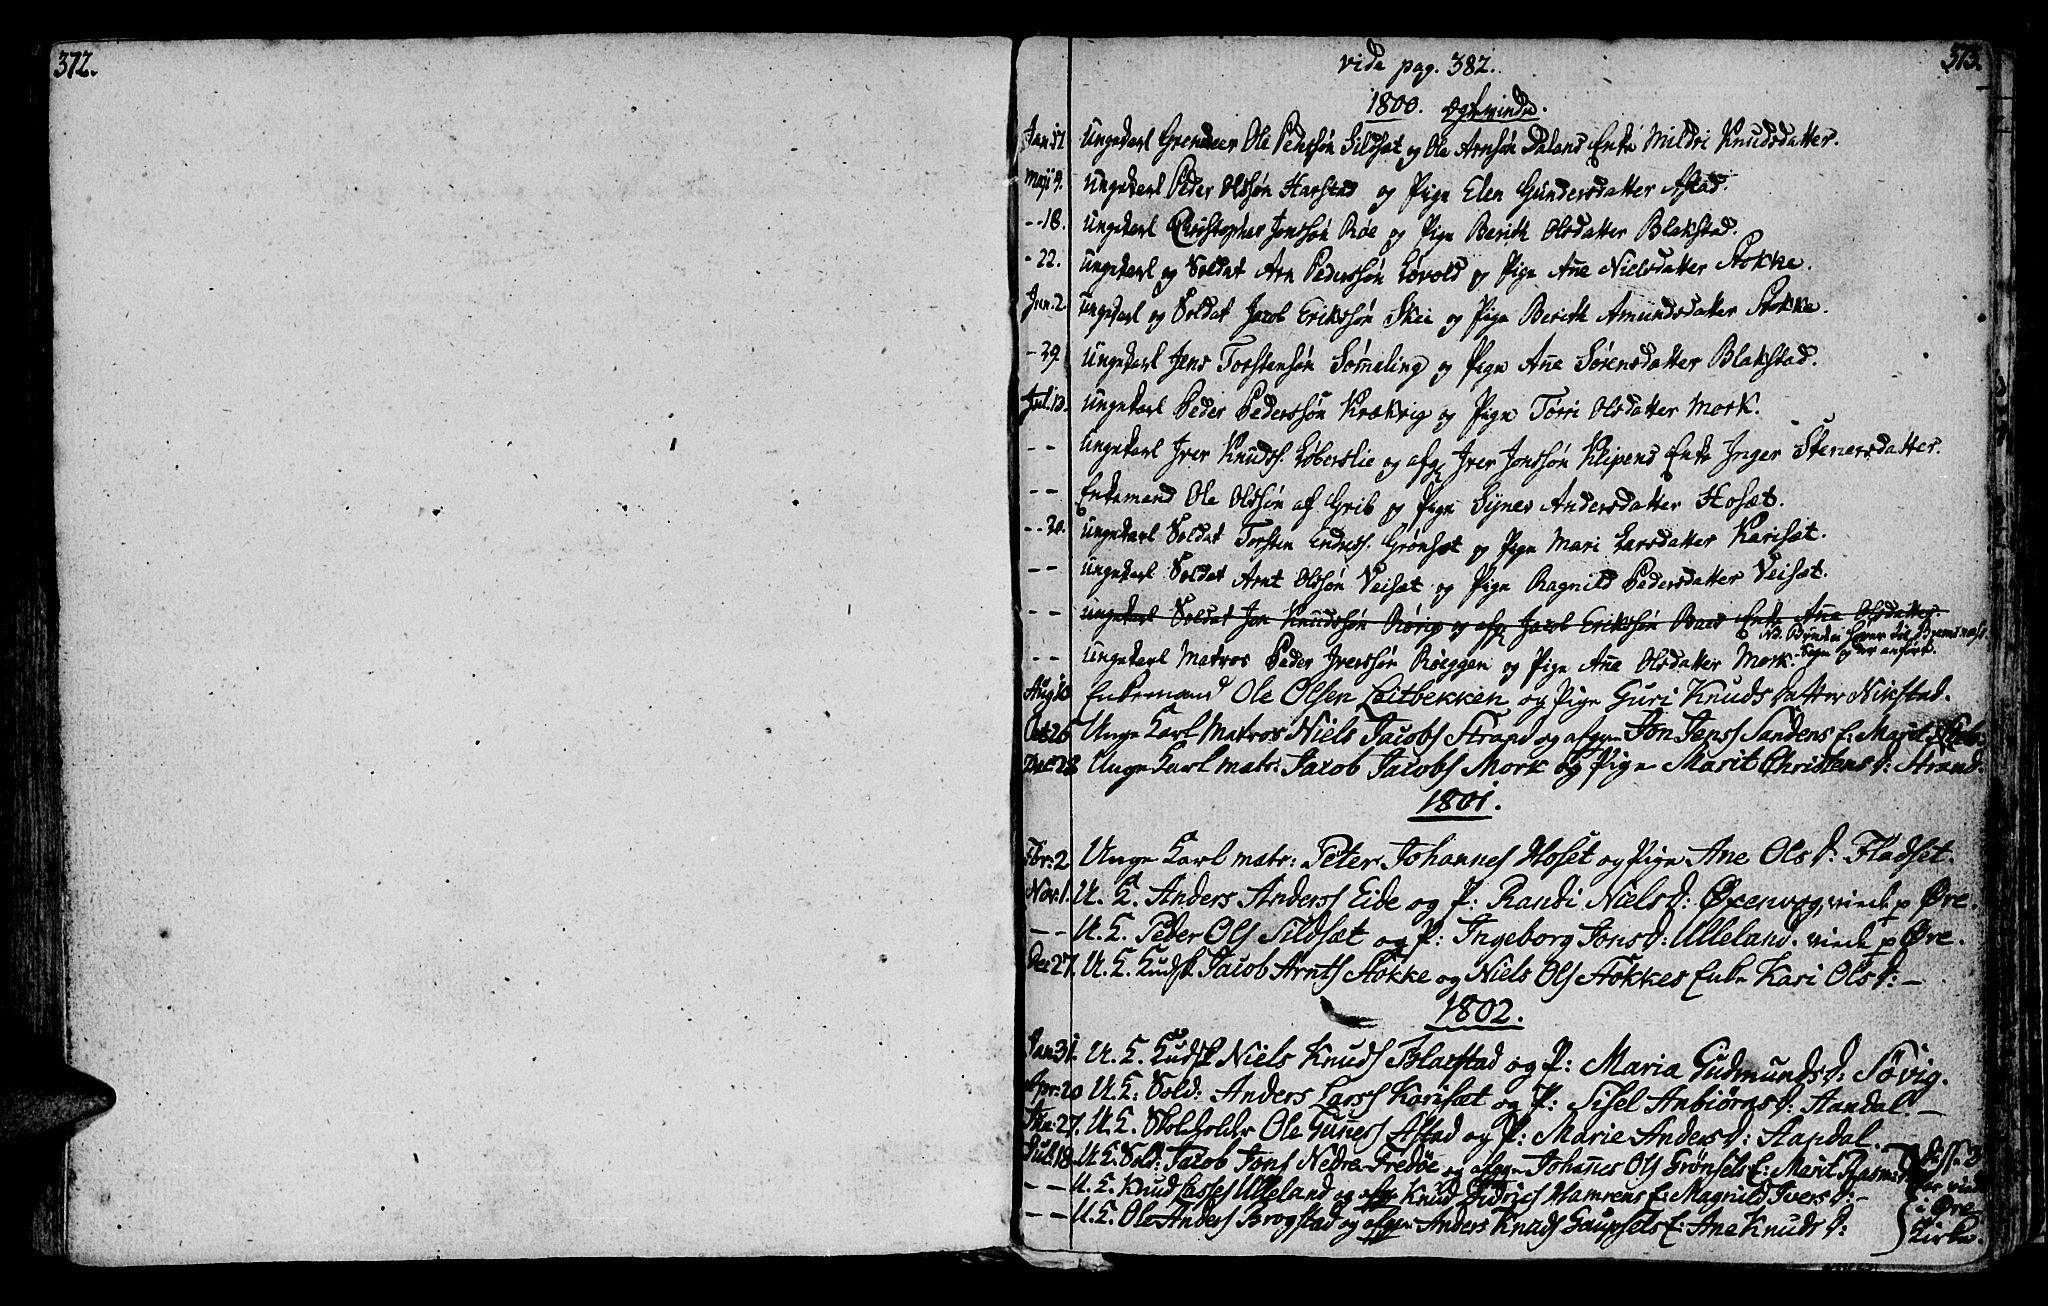 372.
373.
vide pag. 382.
1800. Egteviede.
Jan. 17. Ungekarl Grenadeer Ole Pedersøn Sildsæt og Ole Arnsøn Dalens Enke Mildri Knudsdatter.
Maji 9. Ungekarl Peder Olssøn Harstad og Pige Elen Gundersdatter Astad.
- - 18. Ungekarl Christopher Jonssøn Røe og Pige Berith Olsdatter Blakstad.
- 22. Ungekarl og Soldat Arn Pederssøn Løvold og Pige Añe Nielsdatter Stokke.
Jun. 2. Ungekarl og Soldat Jacob Erikssøn Skei og Pige Berith Amundsdatter Stokke.
- 29. Ungekarl Jens Torstensøn og Pige Añe Sørensdatter Blakstad.
Jul. 13. Ungekarl Peder Pederssøn Krækvig og Pige Torri Olsdatter Mork.
- - Ungekarl Iver Knuds. Løberslie og afg. Iver Jonssøn Klipens Enke Inger Stenersdatter.
- - Enkemand Ole Olssøn af Grib og Pige Synev Andersdatter Hosæt.
- - 20. Ungekarl Soldat Torsten Endress. Grønsæt og Pige Mari Larsdatter Karisæt.
- - Ungekarl Soldat Arnt Olssøn Veisæt og Pige Ragnild Pedersdatter Veisæt.
- - Ungekarl Soldat Jon Knudssøn Rørvig og afg. Jacob Erikssøn Enke Añe Olsdatter
NB. Bruden hører til Bremsnæs
- - Ungekarl Matros Peder Iverssøn Røeggen og Pige Añe Olsdatter Mork. Sogn og der anført.
Aug. 10 Enkemand Ole Olsen Leitbekken og Pige Guri Knuds datter Nikstad.
Oct. 26 Unge Karl Matros Niels Jacobs Strand og afgn. Jon Jens Sandens E: Marit
Dec. 28 Unge Karl matr: Jacob Jacobs Mork og Pige Marit Christens D: Strand.
1801.
Febr: 2 Unge Karl matr: Peter Johannes Hoset og Pige Ane Ols D: Fladset.
Nov. 1. U. K. Anders Anders Eide og P: Randi Niels D: Øxenvog, viede p Øre.
- - U. K. Peder Ols Sildsæt og P: Ingeborg Jons D: Ulleland. viede p Øre.
Dec 27. U. K. Kudsk Jacob Arnts Stokke og Niels Ols Stokkes Enke Kari Ols D: -
1802.
Jan: 31. U. K. Kudsk Niels Knuds Blakstad og P: Maria Gudmunds D: Søvig.
Apr: 20 U. K: Sold: Anders Lars Karisæt og P: Sisel Anbiørns D: Aandal. -
Jun: 27. U. K. Skoleholder Ole Guners Astad og P: Marie Anders D: Aandal.
Jul: 18 U. K. Sold: Jacob Jons Nedre Fredøe og afgn Johañes Ols Grønsets E: Marit Rasmus D:
- - U. K. Knud Lasses Ulleland og afgn Knud Hamrens E: Magnild Ivers D: -
- - U. K. Ole Anders Brogstad og afgn: Anders Knuds Gaupsets E: Ane Knuds D:
disse 3
Par viede
i Øre
Kirke.